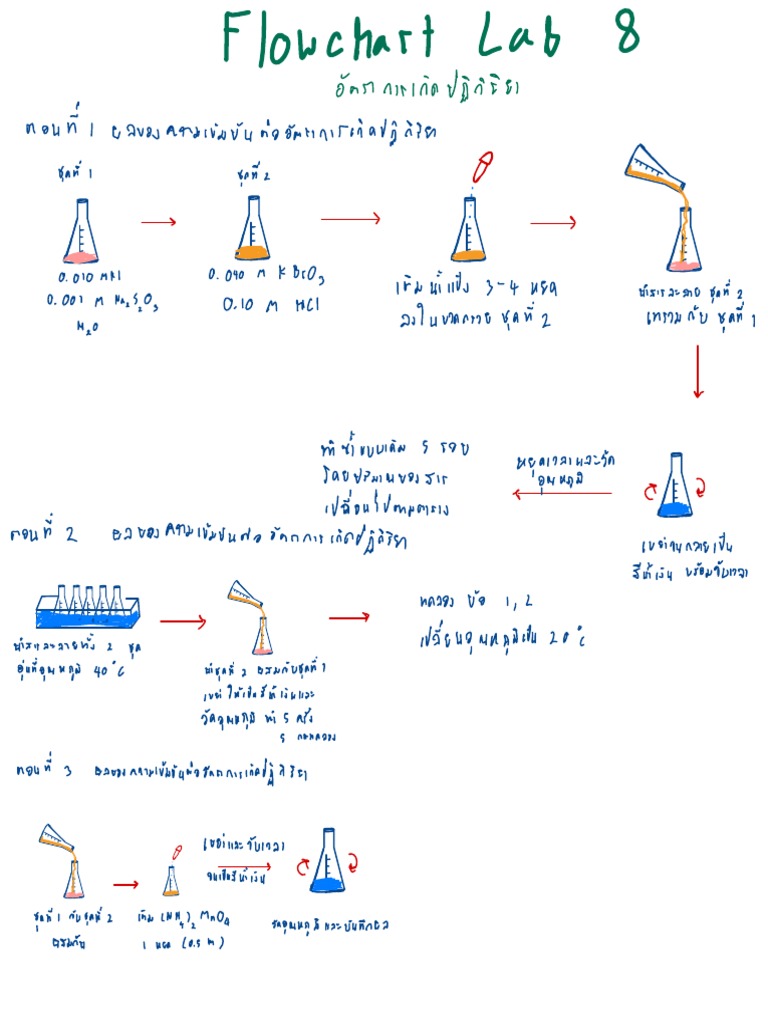 Flowchart Lab 8
อัตราการเกิดปฏิกิริยา
ตอนที่ 1 ผลของความเข้มข้นต่ออัตราการเกิดปฏิกิริยา
ชุดที่ 1
ชุดที่ 2
0.010 M KI
0.001 M Na₂S₂O₃
H₂O
0.040 M KBrO₃
0.10 M HCl
เติมน้ำแป้ง 3-4 หยด
ลงในขวดกรวย ชุดที่ 2
นำสารละลาย ชุดที่ 2
เทรวมกับ ชุดที่ 1
เขย่าจนกลายเป็น
สีน้ำเงิน พร้อมจับเวลา
หยุดเวลาและวัด
อุณหภูมิ
ทำซ้ำแบบเดิม 5 รอบ
โดยปริมาณของสาร
เปลี่ยนไปตามตาราง
ตอนที่ 2 ผลของความเข้มข้นต่ออัตราการเกิดปฏิกิริยา
นำสารละลายทั้ง 2 ชุด
อุ่นที่อุณหภูมิ 40°C
นำชุดที่ 2 ผสมกับชุดที่ 1
เขย่าให้เป็นสีน้ำเงินและ
วัดอุณหภูมิ ทำ 5 ครั้ง
5 การทดลอง
ทดลอง ข้อ 1, 2
เปลี่ยนอุณหภูมิเป็น 20°C
ตอนที่ 3 ผลของความเข้มข้นต่ออัตราการเกิดปฏิกิริยา
ชุดที่ 1 กับชุดที่ 2
ผสมกัน
เติม (NH₄)₂ MnO₄
1 หยด (0.5 M)
เขย่าและจับเวลา
จนเป็นสีน้ำเงิน
วัดอุณหภูมิและบันทึกผล